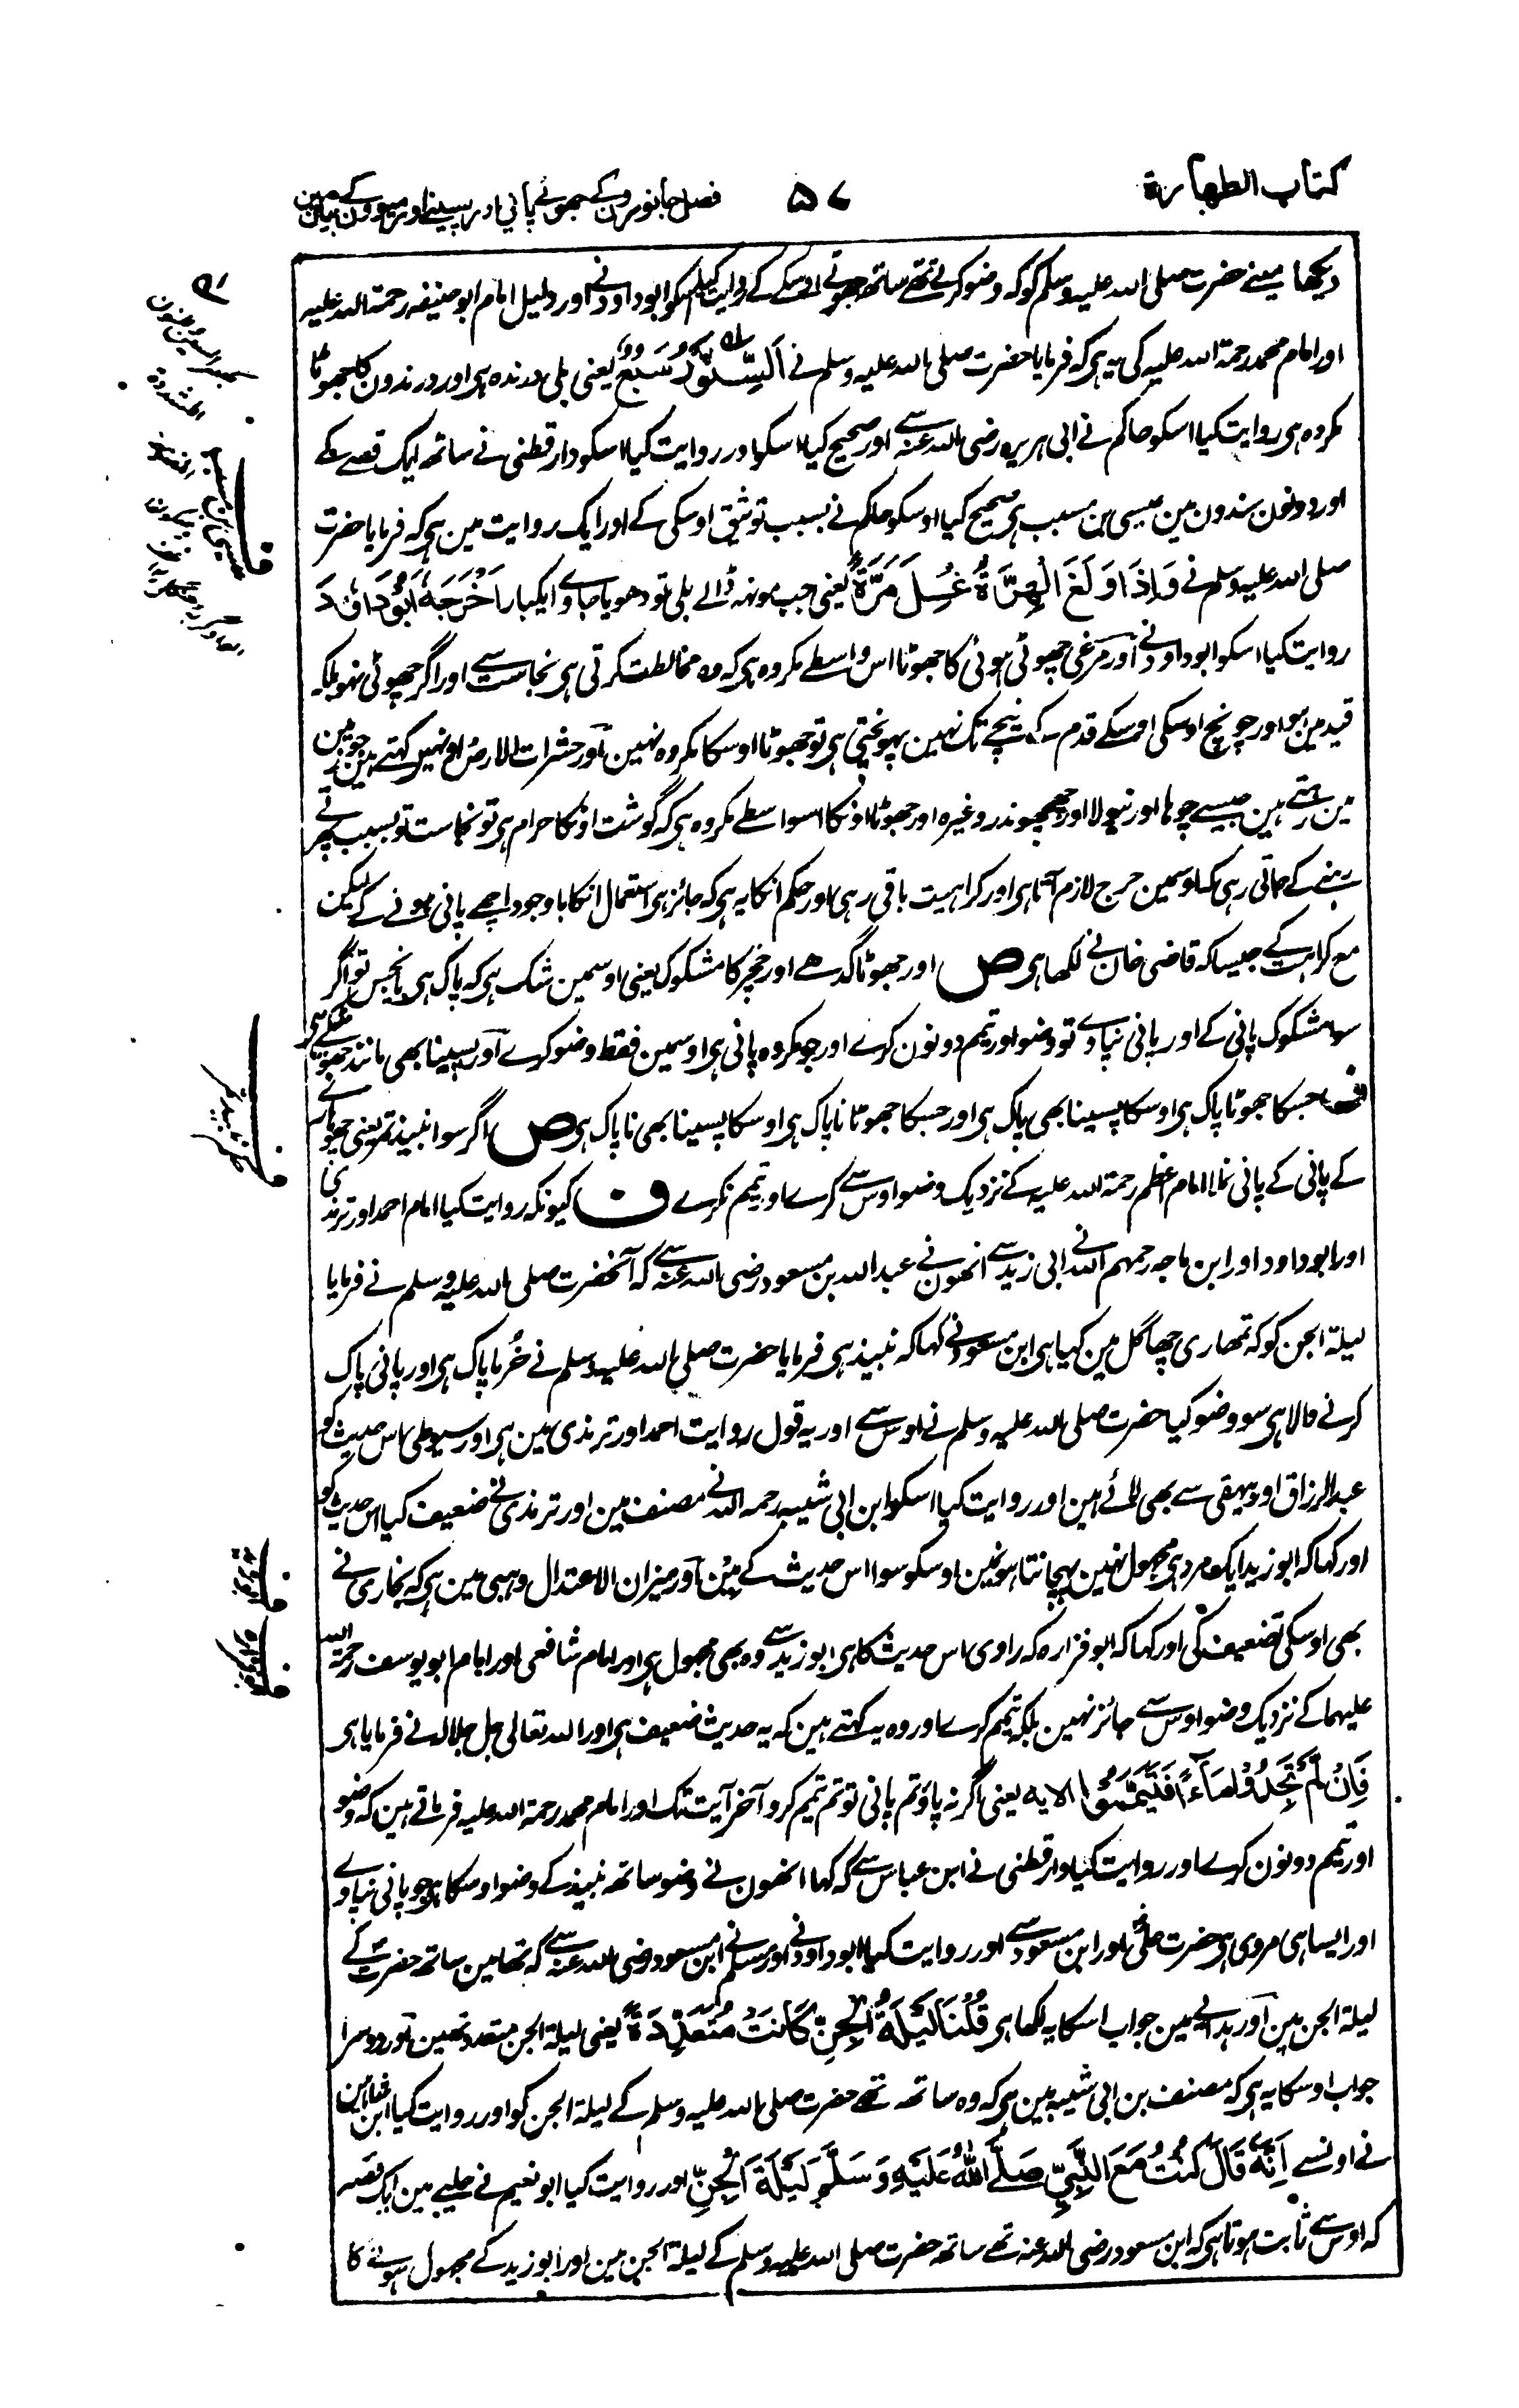 کتاب الطهارة
۵۷
فصل جانورون کے جھوٹے پانی اور پسینے اور میوون کے بیان مین
دیکھا مینے حضرت صلی الله علیہ وسلم کو کہ وضو کرتے تھے ساتھ جھوٹے اوسکے کے روایت کیا اسکو ابوداود نے اور دلیل امام ابوحنیفہ رحمة الله علیہ
اور امام محمد رحمة الله علیہ کی یہ ہی کہ فرمایا حضرت صلی الله علیہ وسلم نے اَلسِّنَّوْرُ سَبُعٌ یعنی بلی درندہ ہی اور درندون کا جھوٹا
مکروہ ہی روایت کیا اسکو حاکم نے ابی ہریرہ رضی الله عنہ سے اور صحیح کیا اسکو اور روایت کیا اسکو دارقطنی نے ساتھ ایک قصے کے
اور دونون سندون مین عیسی بن مسیب ہی صحیح کیا اوسکو حاکم نے بسبب توثیق اوسکی کے اور ایک روایت مین ہی کہ فرمایا حضرت
صلی الله علیہ وسلم نے وَاِذَا وَلَغَ الْهِرَّةُ غُسِلَ مَرَّةً یعنی جب مونہہ ڈالے بلی تو دھویا جاوے ایکبار اَخْرَجَهُ اَبُوْدَاؤدَ
روایت کیا اسکو ابوداود نے اور مرغی چھوٹی ہوئی کا جھوٹا اس واسطے مکروہ ہی کہ وہ مخالطت کرتی ہی نجاست سے اور اگر چھوٹی نہو بلکہ
قید مین ہو اور چونچ اوسکی اوسکے قدم کے نیچے تک نہین پہونچتی ہی تو جھوٹا اوسکا مکروہ نہین اور حشرات الارض اونہین کہتے ہین جو زمین
مین رہتے ہین جیسے چوہا اور نیولا اور چھچھوندر وغیرہ اور جھوٹا اونکا اسواسطے مکروہ ہی کہ گوشت اونکا حرام ہی تو نجاست تو بسبب پھرتے
رہنے کے جاتی رہی کہ اوسمین حرج لازم آتا ہی اور کراہیت باقی رہی اور حکم انکا یہ ہی کہ جائز ہی استعمال انکا باوجود اچھے پانی ہونے کے لیکن
مع کراہت کے جیسا کہ قاضی خان نے لکھا ہی ص اور جھوٹا گدھے اور خچر کا مشکوک یعنی اوسمین شک ہی کہ پاک ہی یا نجس تو اگر
سوا مشکوک پانی کے اور پانی نپاوے تو وضو اور تیمم دونون کرے اور جو مکروہ پانی ہی اوسمین فقط وضو کرے اور پسینا بھی مانند جھوٹے کے ہی
ف جسکا جھوٹا پاک ہی اوسکا پسینا بھی پاک ہی اور جسکا جھوٹا ناپاک ہی اوسکا پسینا بھی ناپاک ہی ص اگر سوا نبیذ تمر یعنی چھوہارے
کے پانی کے پانی نملا امام اعظم رحمة الله علیہ کے نزدیک وضو اوس سے کرے اور تیمم نکرے ف کیونکہ روایت کیا امام احمد اور ترمذی
اور ابوداود اور ابن ماجہ رحمہم الله نے ابی زید سے انھون نے عبدالله بن مسعود رضی الله عنہ سے کہ آنحضرت صلی الله علیہ وسلم نے فرمایا
لیلة الجن کو کہ تمھاری چھاگل مین کیا ہی ابن مسعود نے کہا کہ نبیذ ہی فرمایا حضرت صلی الله علیہ وسلم نے خُرما پاک ہی اور پانی پاک
کرنے والا ہی سو وضو کیا حضرت صلی الله علیہ وسلم نے اوس سے اور یہ قول روایت احمد اور ترمذی مین ہی اور سیوطی اس حدیث کو
عبدالرزاق اور بیہقی سے بھی لائے ہین اور روایت کیا اسکو ابن ابی شیبہ رحمہ الله نے مصنف مین اور ترمذی نے ضعیف کیا اس حدیث کو
اور کہا کہ ابوزید ایک مرد ہی مجہول نہین پہچانتا ہون مین اوسکو سوا اس حدیث کے مین اور میزان الاعتدال ذہبی مین ہی کہ بخاری نے
بھی اوسکی تضعیف کی اور کہا کہ ابوفزارہ کہ راوی اس حدیث کا ہی ابوزید سے وہ بھی مجہول ہی اور امام شافعی اور امام ابویوسف رحمة الله
علیہما کے نزدیک وضو اوس سے جائز نہین بلکہ تیمم کرے اور وہ یہ کہتے ہین کہ یہ حدیث ضعیف ہی اور الله تعالی جل جلالہ نے فرمایا ہی
فَاِنْ لَّمْ تَجِدُوْا مَآءً فَتَیَمَّمُوْا الایه یعنی اگر نہ پاؤ تم پانی تو تم تیمم کرو آخر آیت تک اور امام محمد رحمة الله علیہ فرماتے ہین کہ وضو
اور تیمم دونون کرے اور روایت کیا دارقطنی نے ابن عباس سے کہ کہا انھون نے وضو ساتھ نبیذ کے وضو اوسکا ہی جو پانی نپاوے
اور ایسا ہی مروی ہی حضرت علی اور ابن مسعود سے اور روایت کیا ابوداود نے اور مسلم نے ابن مسعود رضی الله عنہ سے کہ نتھا مین ساتھ حضرت کے
لیلة الجن مین اور ہدایے مین جواب اسکا یہ لکھا ہی قُلْنَا لَیْلَةُ الْجِنِّ کَانَتْ مُتَعَدِّدَةً یعنی لیلة الجن متعدد تھین اور دوسرا
جواب اوسکا یہ ہی کہ مصنف بن ابی شیبہ مین ہی کہ وہ ساتھ تھے حضرت صلی الله علیہ وسلم کے لیلة الجن کو اور روایت کیا ابن شاہین
نے اونسے اَنَّهٗ قَالَ کُنْتُ مَعَ النَّبِیِّ صَلَّی اللهُ عَلَیْهِ وَسَلَّمَ لَیْلَةَ الْجِنِّ اور روایت کیا ابونعیم نے حلیے مین ایک قصہ
کہ اوس سے ثابت ہوتا ہی کہ ابن مسعود رضی الله عنہ تھے ساتھ حضرت صلی الله علیہ وسلم کے لیلة الجن مین اور ابوزید کے مجہول ہونے کا
عیسی بن مسیب
حکم نبیذ تمر
ابوزید
ابوفزارہ